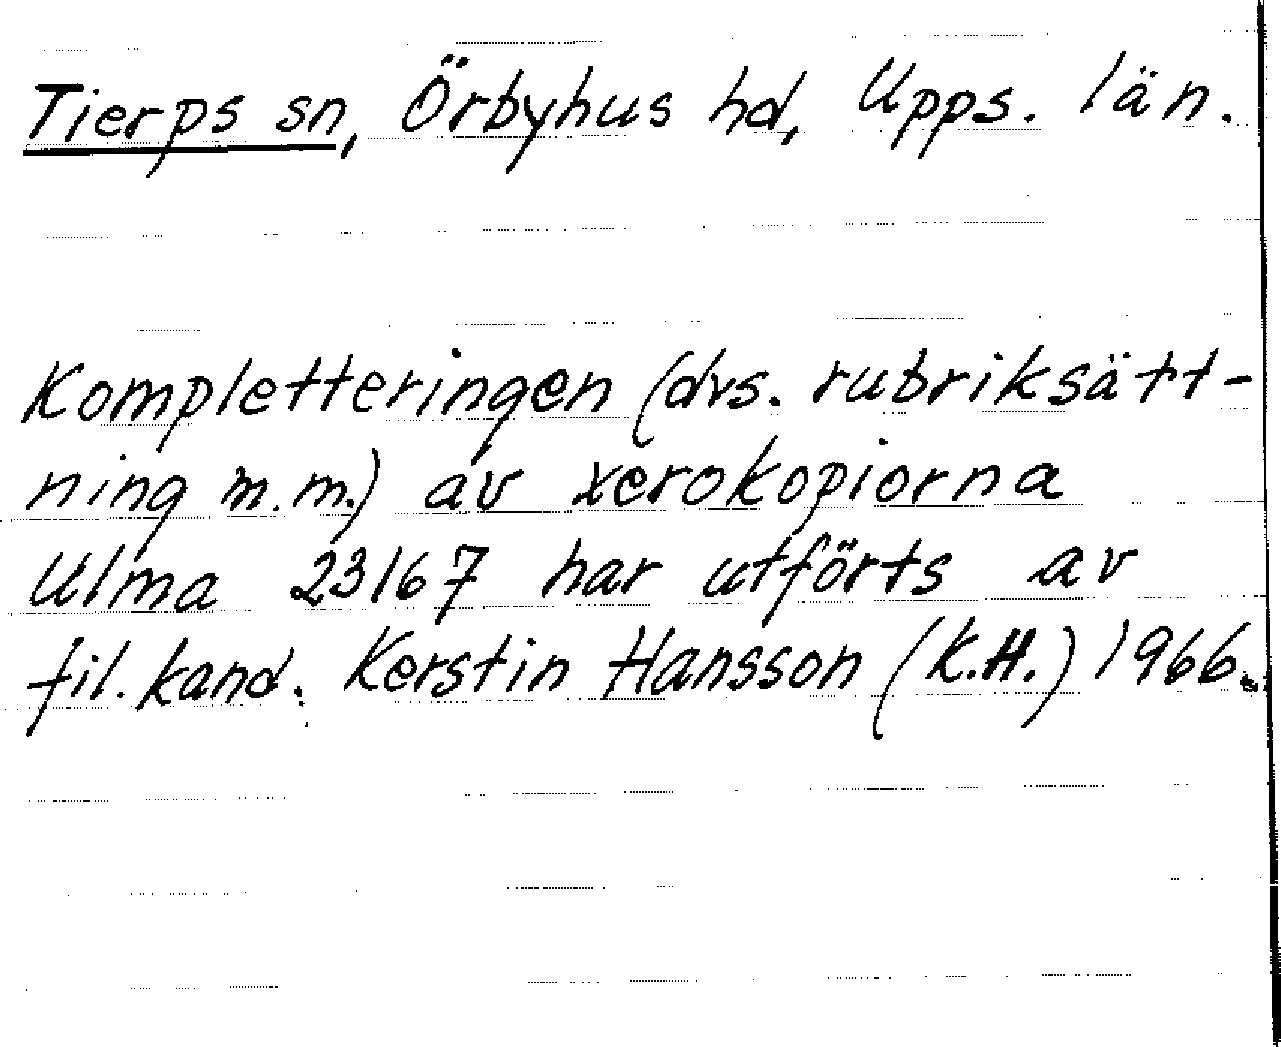 Tierps sn, Örbyhus hd, Upps. län.
Kompletteringen (dvs. rubriksätt-
ning m.m.) av xerokopiorna
Ulma 23167 har utförts av
fil. kand. Kerstin Hansson (K.H.) 1966.